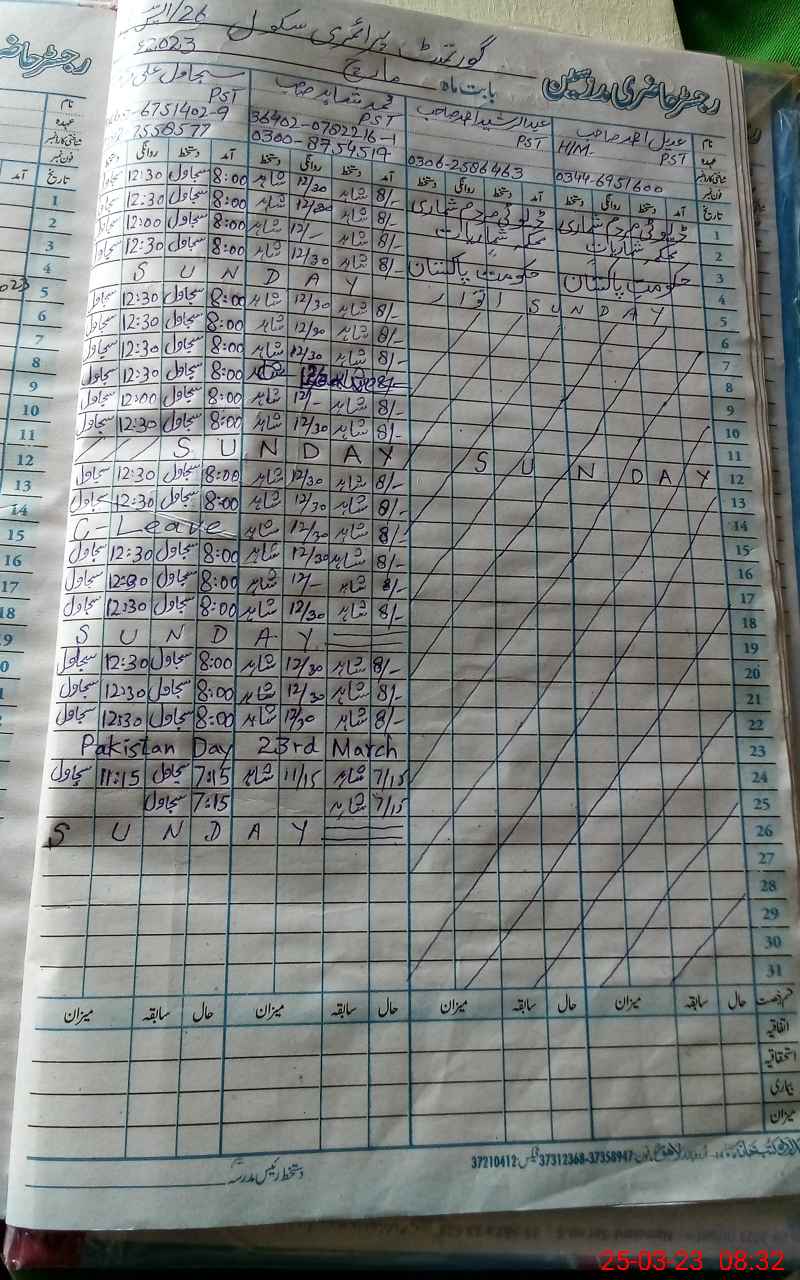 گورنمنٹ پرائمری سکول 26/الف
رجسٹر حاضری مدرسین بابت ماہ مارچ 2023ء
نام عدیل احمد صاحب عبدالرشید احمد صاحب محمد شاہد صاحب سجاول علی
عہدہ H/M- PST PST PST PST
36402-0782216-1 6751402-9
فون نمبر 0344-6951600 0306-2586463 7558577
تاریخ آمد دستخط روانگی دستخط آمد دستخط روانگی دستخط آمد دستخط روانگی دستخط آمد دستخط روانگی دستخط
1 ڈیوٹی مردم شماری ڈیوٹی مردم شماری 8/- شاہد 12/30 شاہد 8:00 سجاول 12:30 سجاول
2 محکمہ شماریات محکمہ شماریات 8/- شاہد 12/30 شاہد 8:00 سجاول 12:30 سجاول
3 حکومت پاکستان حکومت پاکستان 8/- شاہد 12/- شاہد 8:00 سجاول 12:00 سجاول
4 8/- شاہد 12/30 شاہد 8:00 سجاول 12:30 سجاول
5 S U N D A Y اتوار S U N D A Y
6 8/- شاہد 12/30 شاہد 8:00 سجاول 12:30 سجاول
7 8/- شاہد 12/30 شاہد 8:00 سجاول 12:30 سجاول
8 8/- شاہد 12/30 شاہد 8:00 سجاول 12:30 سجاول
9 8/- شاہد 8:00 سجاول 12:30 سجاول
10 8/- شاہد 12/- شاہد 8:00 سجاول 12:00 سجاول
11 8/- شاہد 12/30 شاہد 8:00 سجاول 12:30 سجاول
12 S U N D A Y S U N D A Y
13 8/- شاہد 12/30 شاہد 8:00 سجاول 12:30 سجاول
14 8/- شاہد 12/30 شاہد 8:00 سجاول 12:30 سجاول
15 8/- شاہد 12/30 شاہد C-Leave
16 8/- شاہد 12/30 شاہد 8:00 سجاول 12:30 سجاول
17 8/- شاہد 12/- شاہد 8:00 سجاول سجاول
18 8/- شاہد 12/30 شاہد 8:00 سجاول 12:30 سجاول
19 S U N D A Y
20 8/- شاہد 12/30 شاہد 8:00 سجاول 12:30 سجاول
21 8/- شاہد 12/30 شاہد 8:00 سجاول 12:30 سجاول
22 8/- شاہد 12/30 شاہد 8:00 سجاول 12:30 سجاول
23 Pakistan Day 23rd March
24 7/15 شاہد 11/15 شاہد 7:15 سجاول 11:15 سجاول
25 7/15 شاہد 7:15 سجاول
26 S U N D A Y
27
28
29
30
31
قسم رخصت حال سابقہ میزان حال سابقہ میزان حال سابقہ میزان حال سابقہ میزان
اتفاقیہ
استحقاقیہ
بیماری
میزان
فون: 37358947-37312368 فیکس: 37210412
دستخط رئیس مدرسہ
25-03-23 08:32